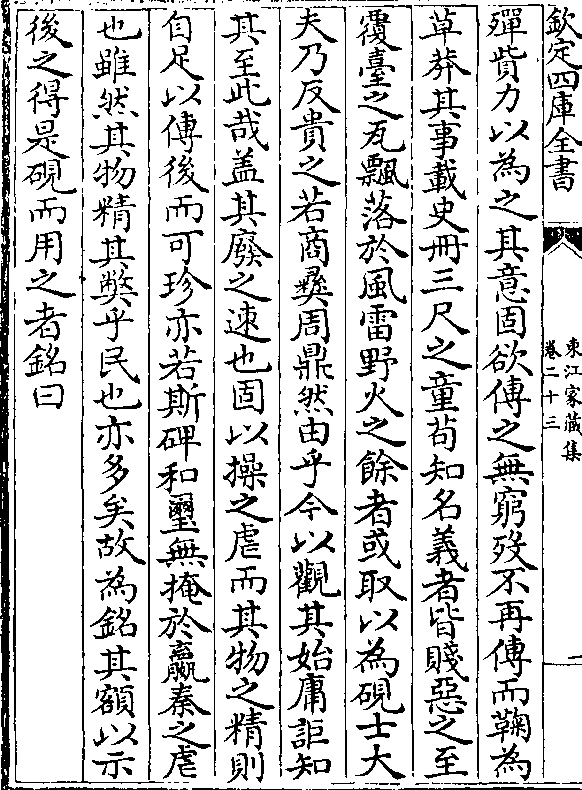 欽定四庫全書
東江家藏集
卷二十三
一
殫貲力以為之其意固欲傳之無窮歿不再傳而鞠為
草莽其事載史冊三尺之童茍知名義者皆賤惡之至
覆臺之瓦飄落於風雷野火之餘者或取以為硯士大
夫乃反貴之若商彞周鼎然由乎今以觀其始庸詎知
其至此哉盖其廢之速也固以操之虐而其物之精則
自足以傳後而可珍亦若斯碑和璽無掩於嬴秦之虐
也雖然其物精其弊乎民也亦多矣故為銘其額以示
後之得是硯而用之者銘曰